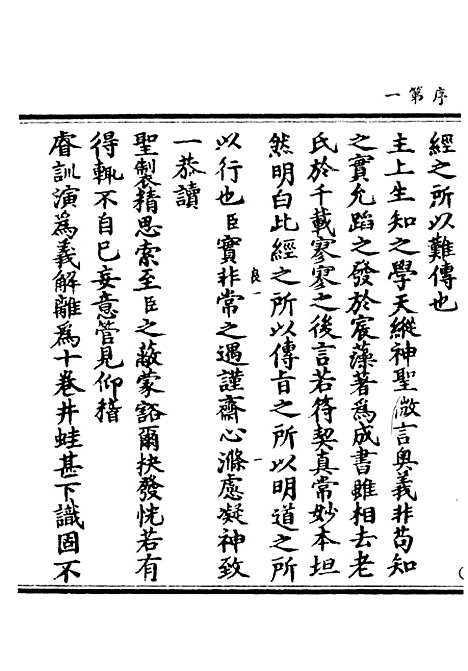 序第一
經之所以難傳也
主上生知之學天縱神聖微言奧義非苟知
之實允蹈之發於宸藻著爲成書雖相去老
氏於千載寥寥之後言若符契真常妙本坦
然明白此經之所以傳旨之所以明道之所
以行也臣良一實非常之遇謹齋心滌慮凝神致
一恭讀
聖製精思索至臣之蔽蒙豁爾抉發恍若有
得輒不自已妄意管見仰稽
睿訓演爲義解離爲十卷井蛙甚下識固不